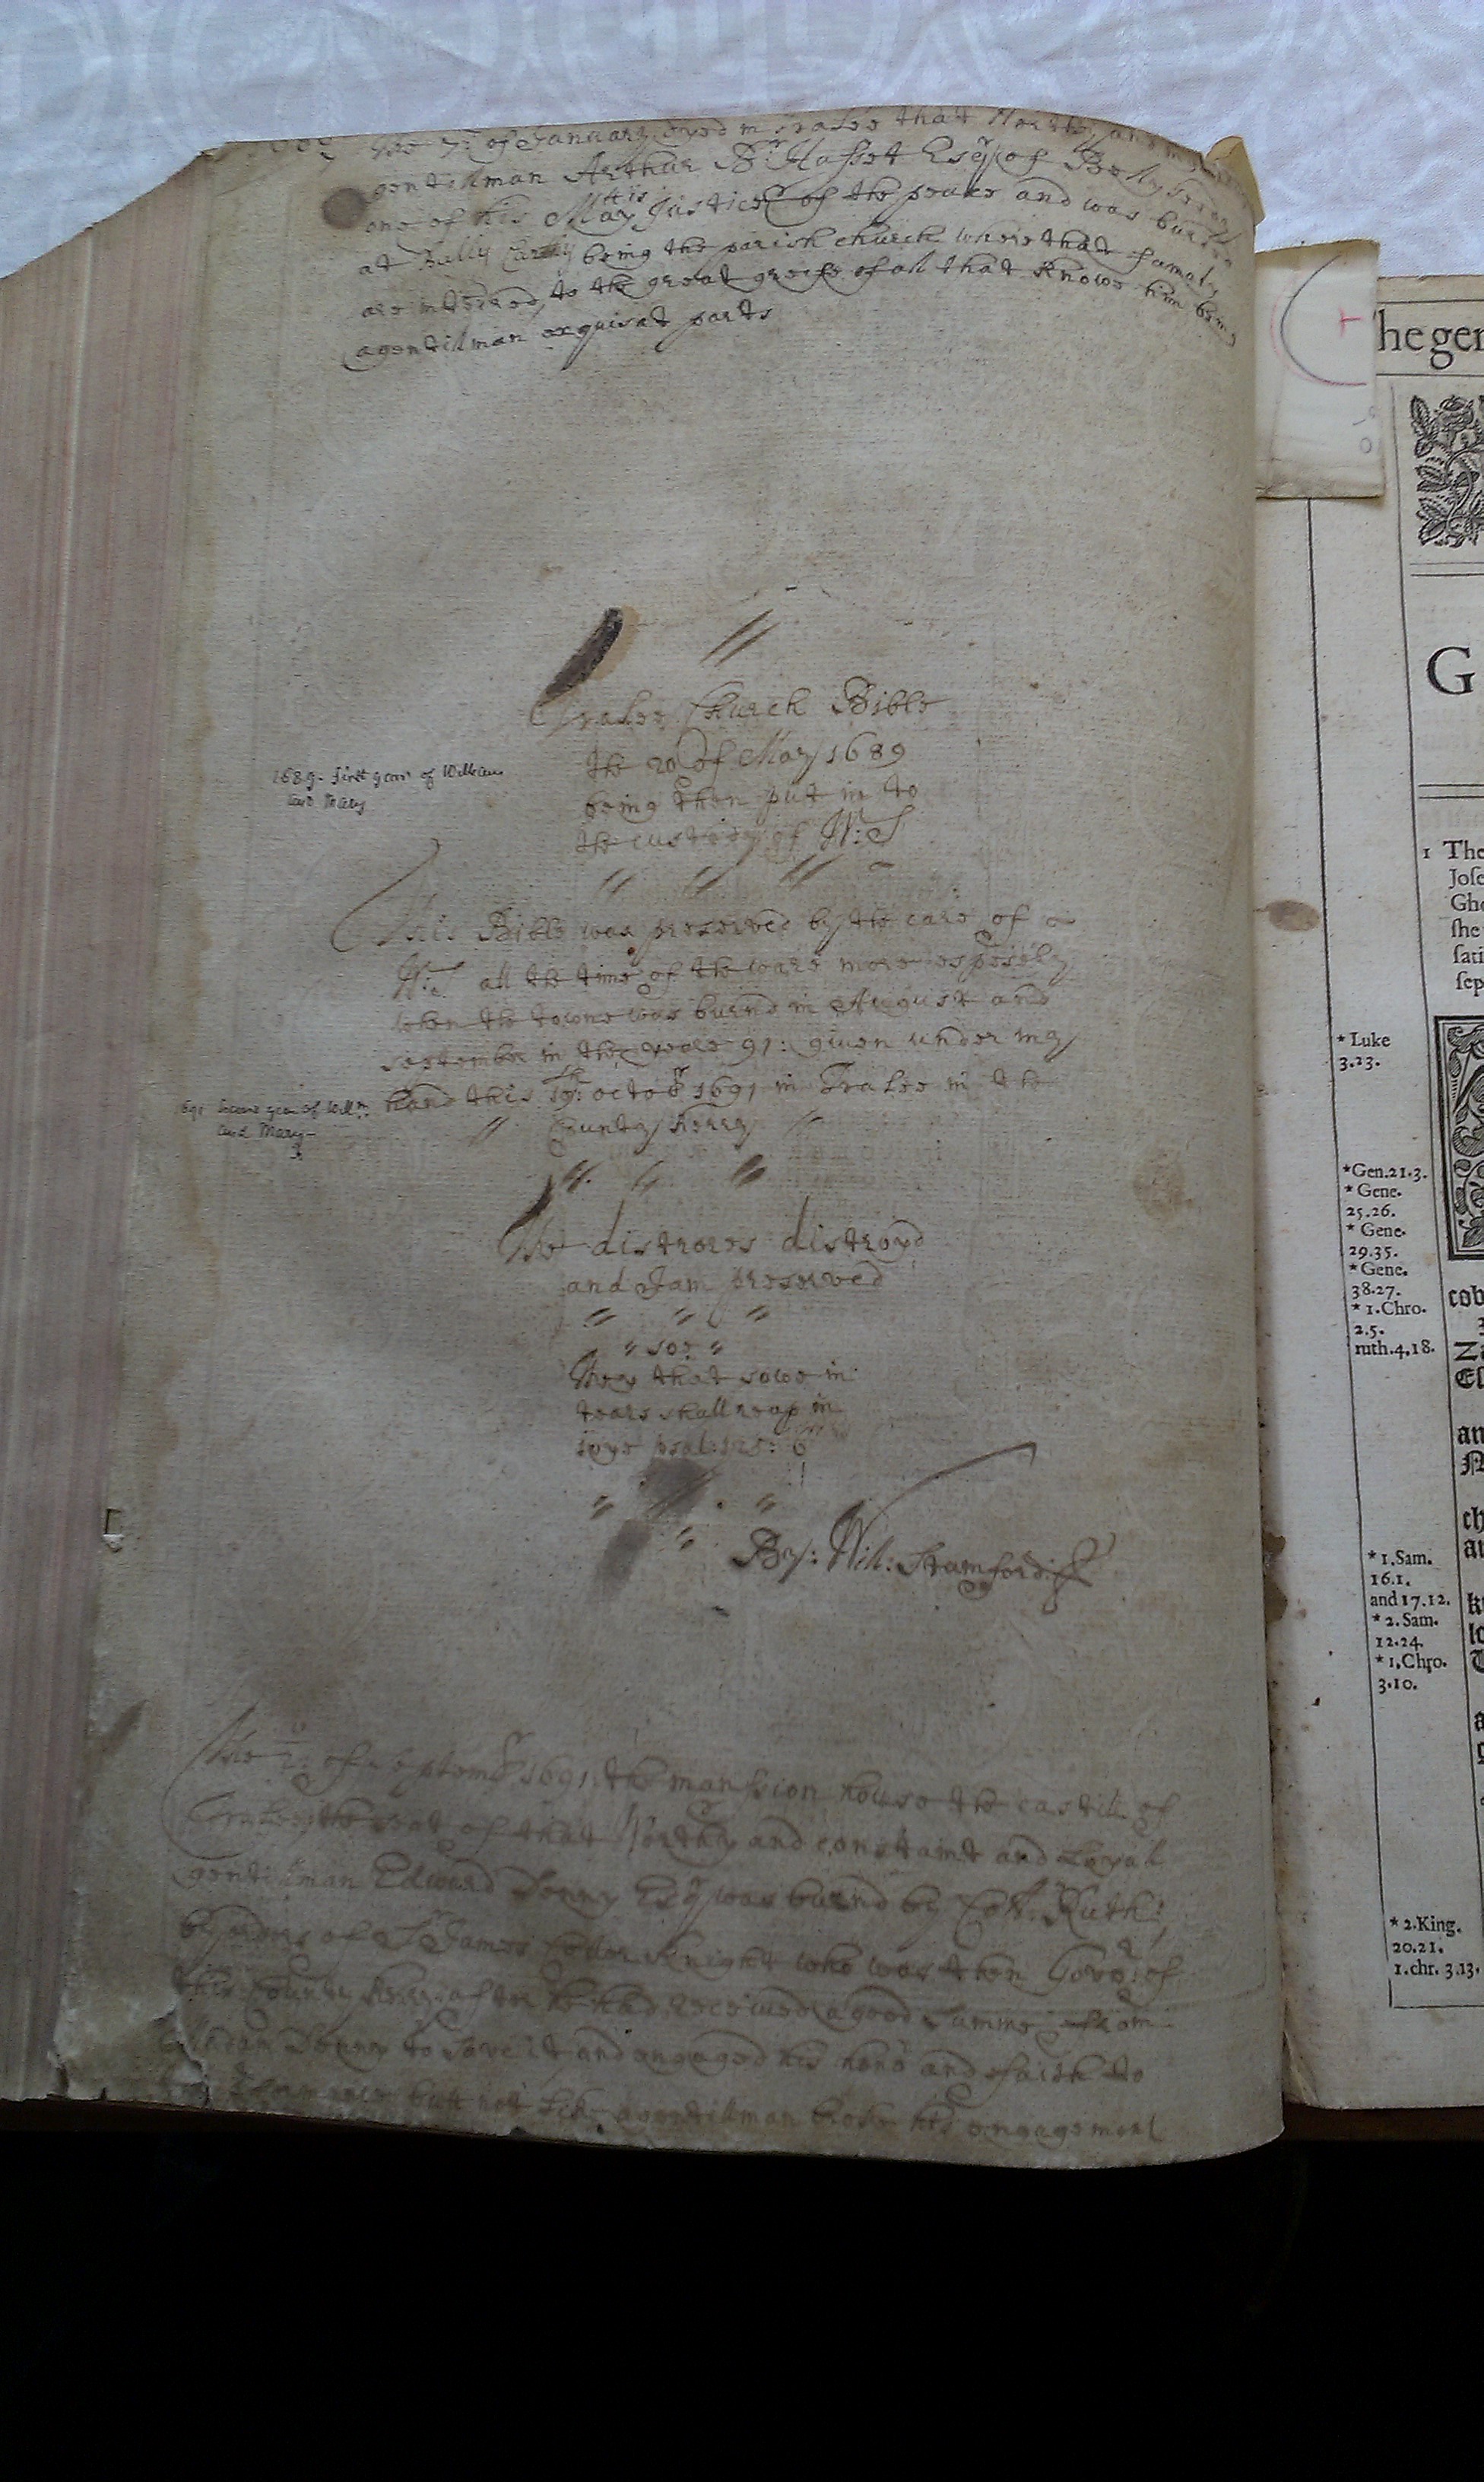 the 7: of January dyed in Tralee that Worthy and
gentillman Arthur Br Hasset Esqr of Bally
one of his Maytis Justices of the peace and was
at Bally being the parish church where that famaly
are interred, to the great greife of all that knowe him being
a gentillman exquisat parts
Tralee Church Bible
the 20 of May 1689
being then put in to
the custody of W:S
1689. first year of William
and Mary
This Bible was preserved by the care of
W:S all the time of the ware more espesely
when the towne was burnd in August and
september in the yeare 91: given under my
hand this 19th: octobr 1691 in Tralee in the
County Kerry
1691 Second year of Willm.
and Mary
The distrores distroyd
and I am preserved
soe
They that sowe in
tears shall reap in
ioye psal:125: 6
By: Will: Stamford:
The of Septembr 1691: the manssion house the castill of
the seat of that Worthy and constaint and Loyal
gentillman Edward Denny Esqr was burnd by Coll. Ruth:
by orders of Sr James Cotter Knight who was then Govr: of
this County Kerry after he had receeved a good Summe from
Madam Denny to save it and engaged his honr and faith to
but not like a gentillman broke his engagement
The gen
G
1 The
Jose
Gho
she
sati
sep
* Luke
3.23.
*Gen.21.3.
* Gene.
25.26.
* Gene.
29.35.
* Gene.
38.27.
* 1.Chro.
2.5.
ruth.4,18.
cob
Za
Es
an
ch
* 1.Sam.
16.1.
and 17.12.
* 2.Sam.
12.24.
* 1.Chro.
3.10.
* 2.King.
20.21.
1.chr. 3.13.